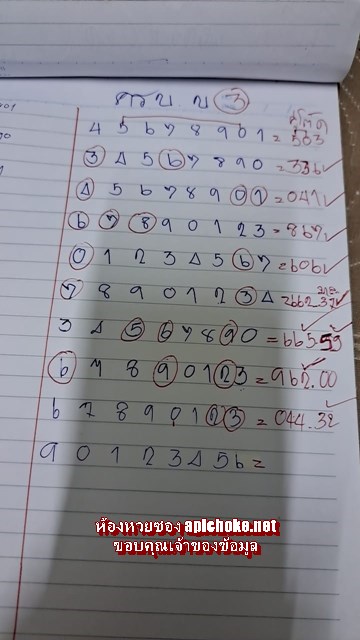 ครบ บ 3
4 5 6 7 8 9 0 1 = 503
3 4 5 6 7 8 9 0 = 336
4 5 6 7 8 9 0 1 = 041
6 7 8 9 0 1 2 3 = 867
0 1 2 3 4 5 6 7 = 606
7 8 9 0 1 2 3 4 2662.37
3 4 5 6 7 8 9 0 = 665.59
6 7 8 9 0 1 2 3 = 962.00
6 7 8 9 0 1 2 3 = 044.32
9 0 1 2 3 4 5 6 =
ห้องหวยซอง apichoke.net
ขอบคุณเจ้าของข้อมูล